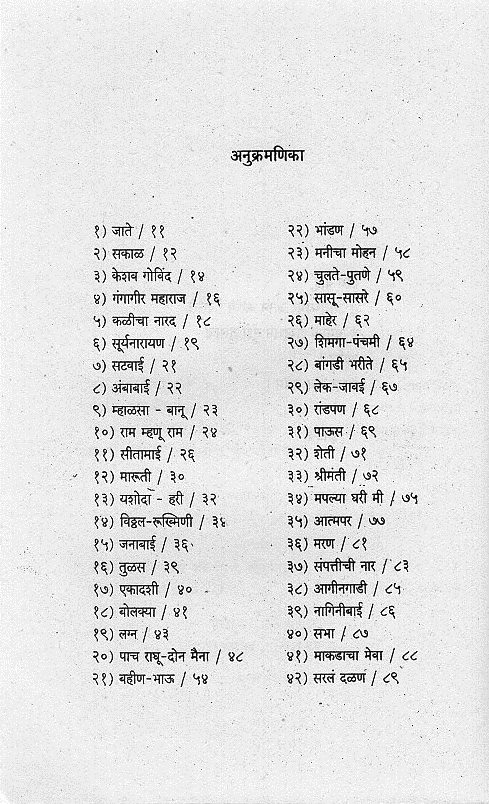 अनुक्रमणिका
१) जाते / ११
२) सकाळ / १२
३) केशव गोविंद / १४
४) गंगागीर महाराज / १६
५) कळीचा नारद / १८
६) सूर्यनारायण / १९
७) सटवाई / २१
८) अंबाबाई / २२
९) म्हाळसा - बानू / २३
१०) राम म्हणू राम / २४
११) सीतामाई / २६
१२) मारूती / ३०
१३) यशोदा - हरी / ३२
१४) विठ्ठल-रूख्मिणी / ३४
१५) जनाबाई / ३६
१६) तुळस / ३९
१७) एकादशी / ४०
१८) बोलक्या / ४१
१९) लग्न / ४३
२०) पाच राघू-दोन मैना / ४८
२१) बहीण-भाऊ / ५४
२२) भांडण / ५७
२३) मनीचा मोहन / ५८
२४) चुलते-पुतणे / ५९
२५) सासू-सासरे / ६०
२६) माहेर / ६२
२७) शिमगा-पंचमी / ६४
२८) बांगडी भरीते / ६५
२९) लेक-जावई / ६७
३०) रांडपण / ६८
३१) पाऊस / ६९
३२) शेती / ७१
३३) श्रीमंती / ७२
३४) मपल्या घरी मी / ७५
३५) आत्मपर / ७७
३६) मरण / ८१
३७) संपत्तीची नार / ८३
३८) आगीनगाडी / ८५
३९) नागिनीबाई / ८६
४०) सभा / ८७
४१) माकडाचा मेवा / ८८
४२) सरलं दळणं / ८९